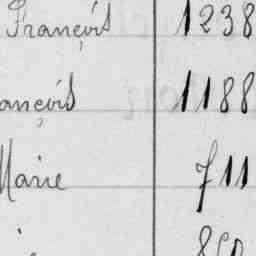 François 1238
ançois 1188
Marie 711